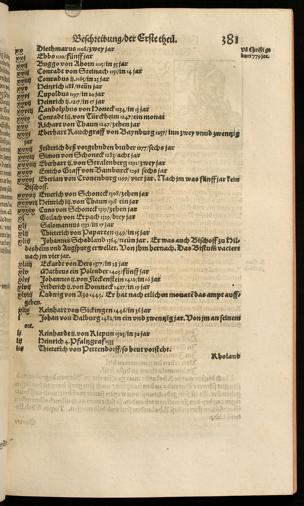 Beschreibung/der Erste theil. 381
Diethmarus 1108/zwey jar
Ebbo 1110/fünff jar
Buggo von Ahorn 1115/in 35 jar
Conradt von Steinach 1151/in 14 jar
Conradus ij. 1165/in 23 jar
Heinrich 1188/neün jar
Lupoldus 1197/in 20 jar
Heinrich ij. 1217/in 17 jar
Landolphus von Honeck 1234/in 13 jar
Conradt iij. von Türckheim 1247/ein monat
Richart von Thaun 1247/zehen jar
Eberhart Raubgraff von Baynburg 1257/ inn zwey vnnd zwentzig
jar
Friderich deß vorgehnden bruder 1277/sechs jar
Simon von Schoneck 1283/acht jar
Eberhart ij. von Stralenberg 1291/zwey jar
Emicho Graff von Bamburck 1293/ sechs jar
Eberian von Cronenburg 1299/ vier jar. Nach jm was fünff jar kein
Bischoff.
Emerich von Schoneck 1308/zehen jar
Heinrich iij. von Thaun 1318 ein jar
Cuno von Schoneck 1319/zehen jar
Gerlach von Erpach 1329/drey jar
Salomannus 1332/in 17 jar
Dietherich von Paparten 1349/in 15 jar
Johannes Schadland 1364/neün jar. Er was auch Bischoff zu Hil-
desheim vnd Augspurg erwelet. Von jhm hernach. Das Bistum vaciert
nach jm vier jar.
Eckardt von Ders 1377/in 28 jar
Matheus ein Polender 1405/fünff jar
Johannes ij. von Fleckenstein 1410/in 16 jar
Friderich ij. von Domneck 1427/in 19 jar
Ludwig von Ast 1445. Er hat nach etlichen monatē das ampt auff-
geben.
Reinhart von Sickingen 1446/in 36 jar
Johan von Dalburg 1482/in ein vnd zwentzig jar. Von jm an seinem
ort.
Reinhardt ij. von Riepur 1503/in 20 jar
Heinrich 4. Pfaltzgraf 1523
Thieterich von Bettendorff/so heut vorsteht.
Rholand